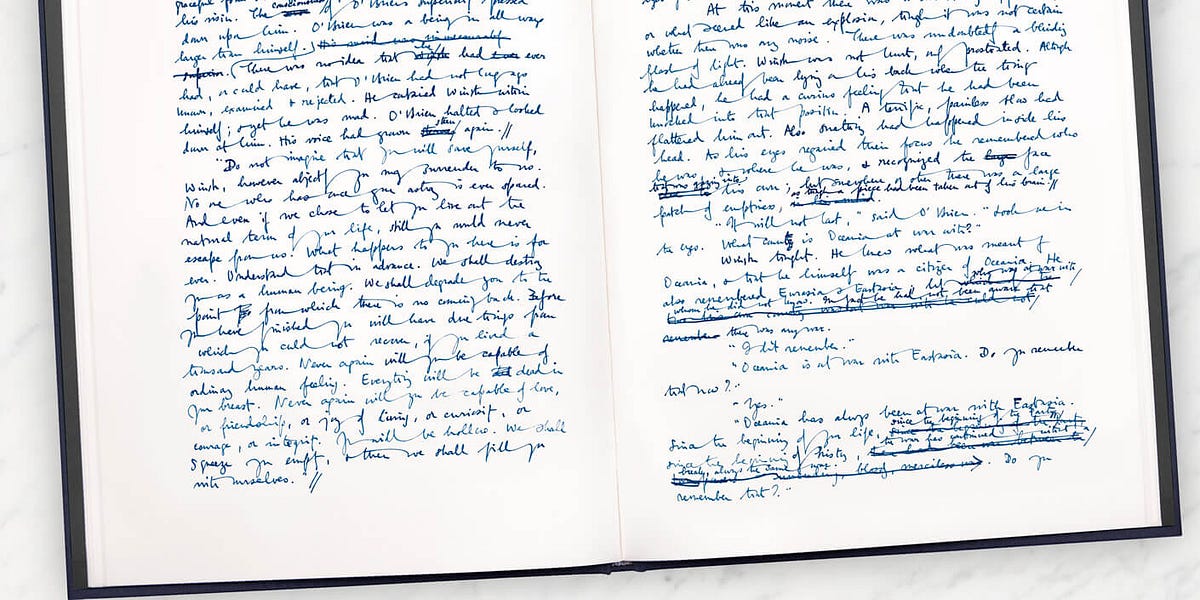 his vision. The
down upon him. O'Brien was a being in all ways
larger than himself.
(There was no idea that he had ever
had, or could have, that O'Brien had not long ago
known, examined & rejected. He contained Winston within
himself; & yet he was mad. O'Brien halted & looked
down at him. His voice had grown stern again. //
"Do not imagine that you will save yourself,
Winston, however abjectly you may surrender to us.
No one who has once gone astray is ever spared.
And even if we chose to let you live out the
natural term of your life, still you would never
escape from us. What happens to you here is for
ever. Understand that in advance. We shall destroy
you as a human being. We shall degrade you to the
point from which there is no coming back. Before
you have finished you will have done things from
which you could not recover, if you lived a
thousand years. Never again will you be capable of
ordinary human feeling. Everything will be dead in
your breast. Never again will you be capable of love,
or friendship, or joy of living, or curiosity, or
courage, or integrity. You will be hollow. We shall
squeeze you empty, & then we shall fill you
with ourselves. //
At this moment there was
or what seemed like an explosion, though it was not certain
whether there was any noise. There was undoubtedly a blinding
flash of light. Winston was not hurt, only prostrated. Although
he had already been lying on his back when the thing
happened, he had a curious feeling that he had been
knocked into that position. A terrific, painless blow had
flattened him out. Also something had happened inside his
head. As his eyes regained their focus he remembered who
he was, & where he was, & recognized the face
his own; but somewhere or other there was a large
patch of emptiness, as though a piece had been taken out of his brain. //
"It will not last," said O'Brien. "Look me in
the eyes. What country is Oceania at war with?"
Winston thought. He knew what was meant by
Oceania, & that he himself was a citizen of Oceania. He
also remembered Eurasia & Eastasia; but who was at war with
whom he did not know. In fact he had not been aware that
there was any war.
"I don't remember."
"Oceania is at war with Eastasia. Do you remember
that now?"
"Yes."
"Oceania has always been at war with Eastasia.
Since the beginning of your life, since the beginning of the Party,
since the beginning of history, the war has continued without a
break, always the same war. Do you
remember that?"